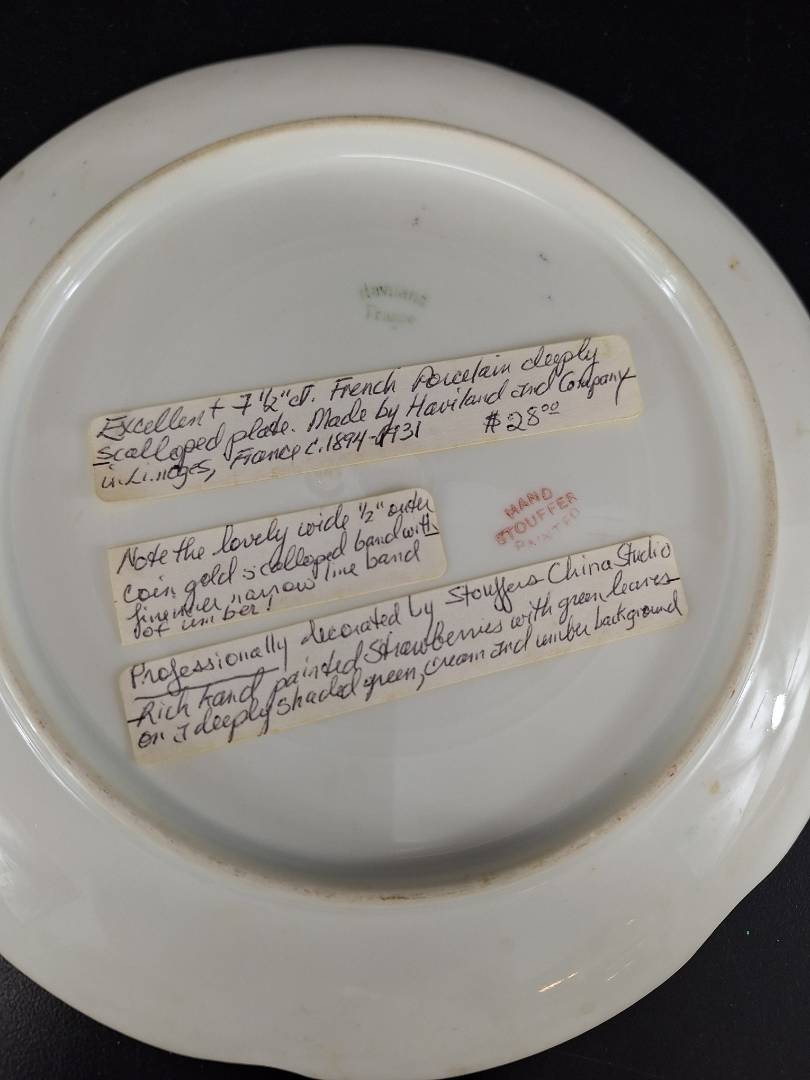 Haviland
France
Excellent 7 1/2" d. French Porcelain deeply
scalloped plate. Made by Haviland and Company
in Limoges, France c.1894-1931 $28.00
HAND
STOUFFER
PAINTED
Note the lovely wide 1/2" outer
coin gold scalloped band with
finer inner narrow line band
of umber!
Professionally decorated by Stouffers China Studio
Rich hand painted Strawberries with green leaves
on a deeply shaded green, cream and umber background